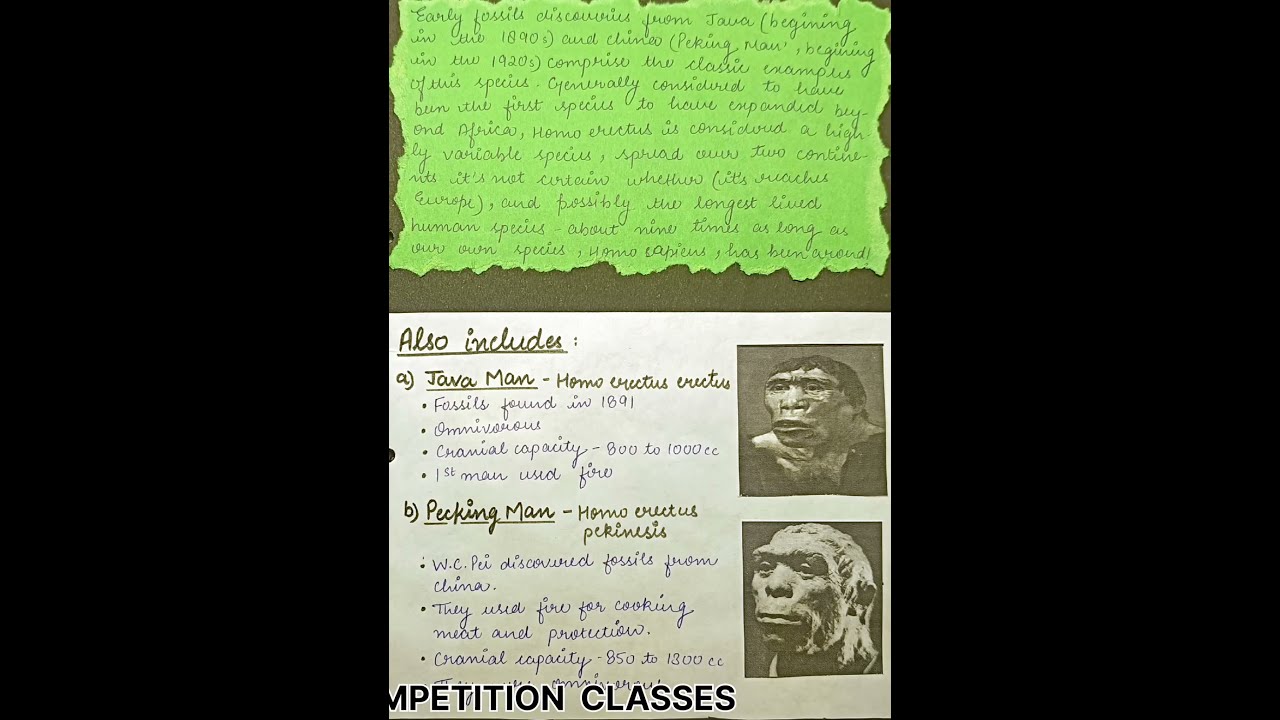 Early fossils discoveries from Java (begining
in the 1890s) and china (Peking Man', begining
in the 1920s) comprise the classic examples
of this species. Generally considered to have
been the first species to have expanded bey-
ond Africa, Homo erectus is considered a high-
ly variable species, spread over two contine-
nts it's not certain whether (it's reaches
Europe), and possibly the longest lived
human species - about nine times as long as
our own species, Homo sapiens, has been around!
Also includes :
a) Java Man - Homo erectus erectus
• Fossils found in 1891
• Omnivorous
• Cranial capacity - 800 to 1000cc
• 1st man used fire
b) Pecking Man - Homo erectus
pekinesis
• W.C. Pei discovered fossils from
china.
• They used fire for cooking
meat and protection.
• Cranial capacity - 850 to 1300 cc
MPETITION CLASSES